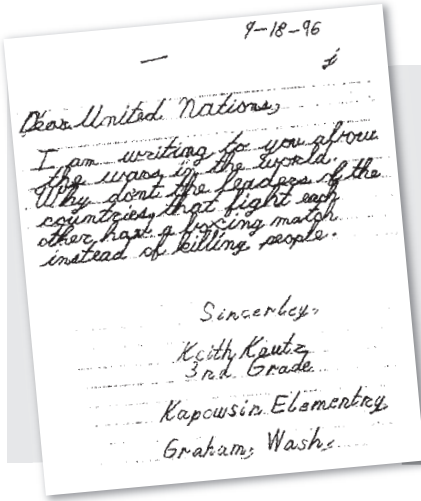 9-18-96
Dear United Nations,
I am writing to you about
the wars in the world.
Why dont the leaders of the
countries, that fight each
other have a boxing match
instead of killing people.
Sincerley,
Keith Kautz
3rd Grade
Kapowsin Elementry,
Graham, Wash,